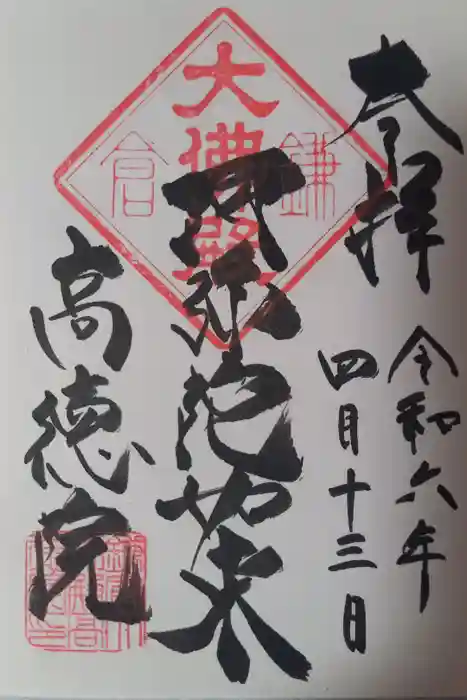 奉拝
令和六年
四月十三日
阿弥陀如来
高徳院
大佛殿
鎌倉